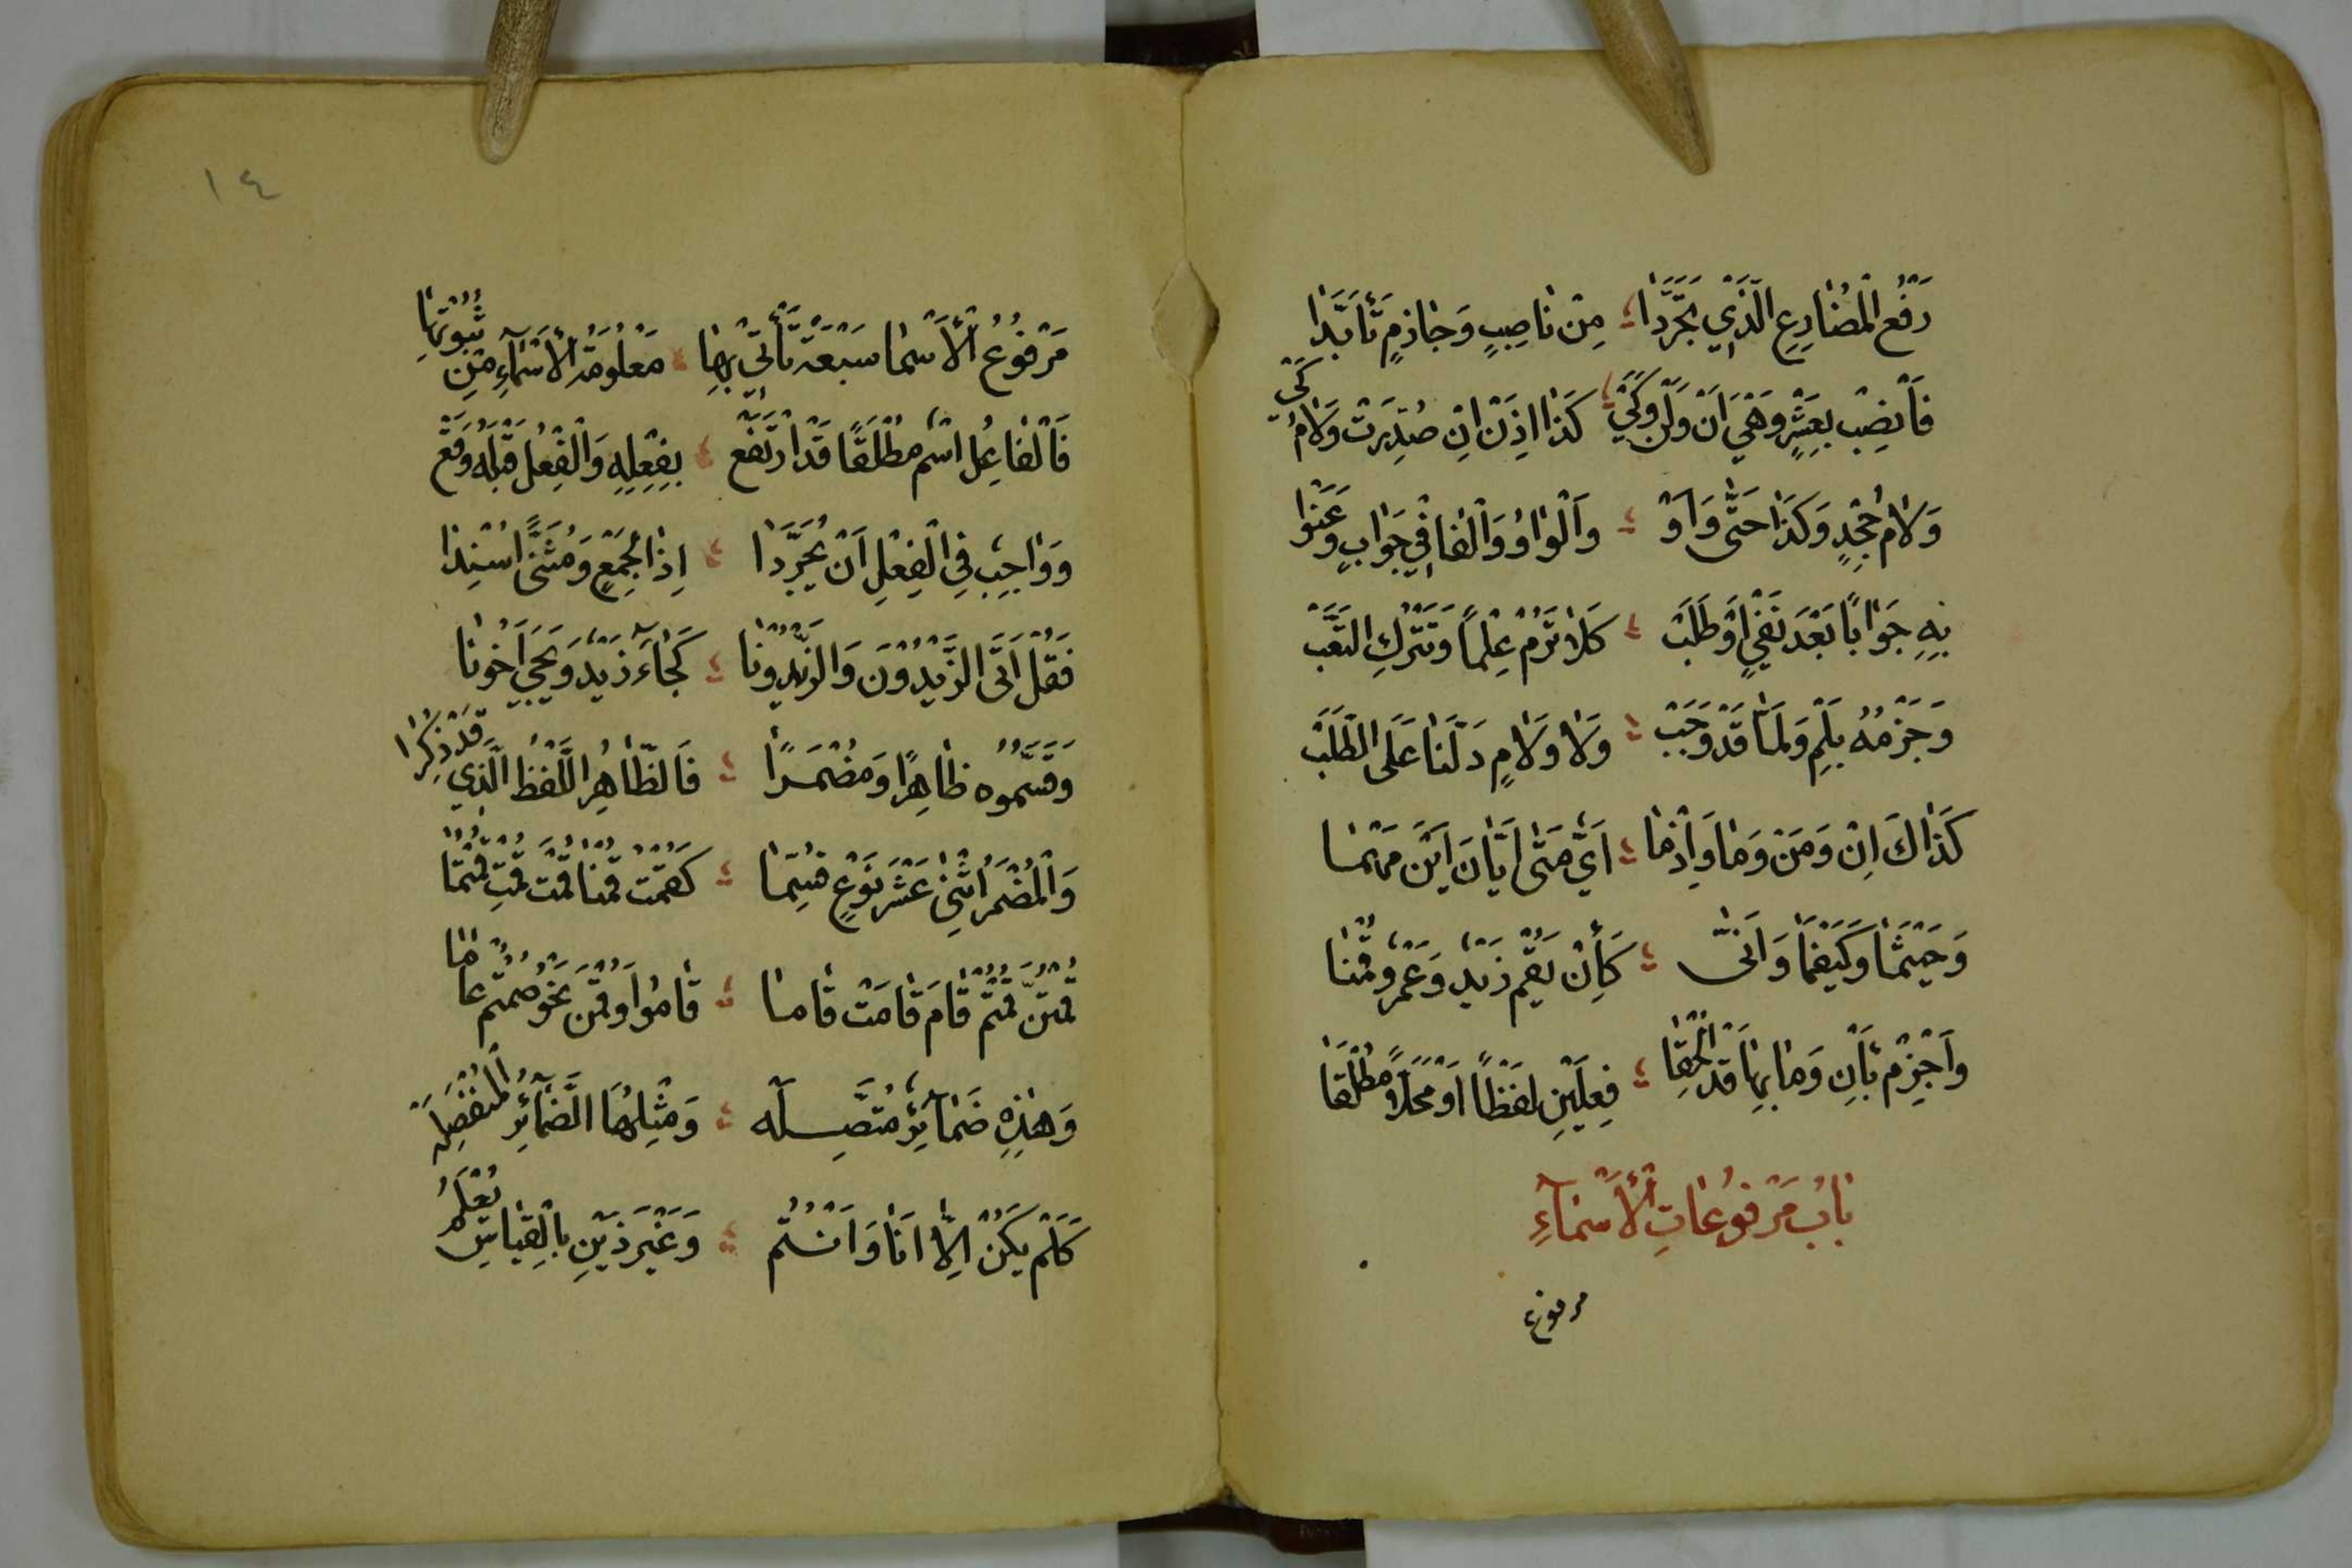 رَفْعُ الْمُضَارِعِ الَّذِي تَجَرَّدَا ؛ مِنْ نَاصِبٍ وَجَازِمٍ تَأَبَّدَا
فَانْصِبْ بِعَشْرٍ وَهْيَ اَنْ وَلَنْ وَكَيْ ؛ كَذَا اِذَنْ اِنْ صُدِّرَتْ وَلَامُ كَيْ
وَلَامُ جَحْدٍ وَكَذَا حَتَّى وَاَوْ ؛ وَالْوَاوُ وَالْفَا فِي جَوَابٍ وَعَنَوْا
بِهِ جَوَابًا بَعْدَ نَفْيٍ اَوْ طَلَبْ ؛ كَلَا تَرُمْ عِلْمًا وَتَتْرُكِ التَّعَبْ
وَجَزْمُهُ بِلَمْ وَلَمَّا قَدْ وَجَبْ ؛ وَلَا وَلَامٍ دَلَّتَا عَلَى الطَّلَبْ
كَذَاكَ اِنْ وَمَنْ وَمَا وَاِذْمَا ؛ اَيٌّ مَتَى اَيَّانَ اَيْنَ مَهْمَا
وَحَيْثُمَا وَكَيْفَمَا وَاَنَّى ؛ كَأِنْ يَقُمْ زَيْدٌ وَعَمْرٌو قُمْنَا
وَاجْزِمْ بِأَنْ وَمَا بِهَا قَدْ اُلْحِقَا ؛ فِعْلَيْنِ لَفْظًا اَوْ مَحَلًّا مُطْلَقَا
بَابُ مَرْفُوعَاتِ الْأَسْمَآءِ
مرفوع
١٤
مَرْفُوعُ الْأَسْمَا سَبْعَةٌ تَأْتِي بِهَا ؛ مَعْلُومَةُ الْأَسْمَآءِ مِنْ تَبْوِيْبِهَا
فَالْفَاعِلُ اسْمٌ مُطْلَقًا قَدِ ارْتَفَعْ ؛ بِفِعْلِهِ وَالْفِعْلُ قَبْلَهُ وَقَعْ
وَوَاجِبٌ فِي الْفِعْلِ اَنْ يُجَرَّدَا ؛ اِذَا لِجَمْعٍ وَمُثَنًّى اُسْنِدَا
فَقُلْ اَتَى الزَّيْدُوْنَ وَالزَّيْدُوْنَا ؛ كَجَآءَ زَيْدٌ وَيَجِي اَخُونَا
وَقَسَّمُوهُ ظَاهِرًا وَمُضْمَرًا ؛ فَالظَّاهِرُ اللَّفْظُ الَّذِي قَدْ ذُكِرَا
وَالْمُضْمَرُ اثْنَيْ عَشْرَ نَوْعٍ قُسِّمَا ؛ كَقُمْتُ قُمْنَا قُمْتَ قُمْتِ قُمْتُمَا
قُمْتُنَّ قُمْتُمْ قَامَ قَامَتْ قَامَا ؛ قَامُوا وَقُمْنَ نَحْوُ صُمْتُمْ عَامَا
وَهٰذِهِ ضَمَآئِرٌ مُتَّصِلَه ؛ وَمِثْلُهَا الضَّمَآئِرُ الْمُنْفَصِلَه
كَلَمْ يَكُنْ اِلَّا اَنَا وَاَنْتُمُ ؛ وَغَيْرُ ذَيْنِ بِالْقِيَاسِ يُعْلَمُ